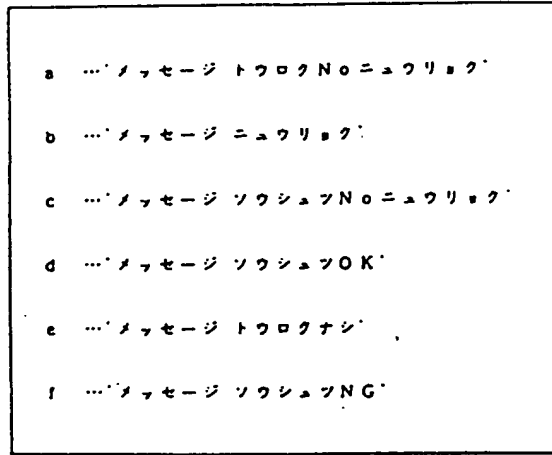 a …"メッセージ トウロクNoニュウリョク"
b …"メッセージ ニュウリョク"
c …"メッセージ ソウシュツNoニュウリョク"
d …"メッセージ ソウシュツOK"
e …"メッセージ トウロクナシ"
f …"メッセージ ソウシュツNG"